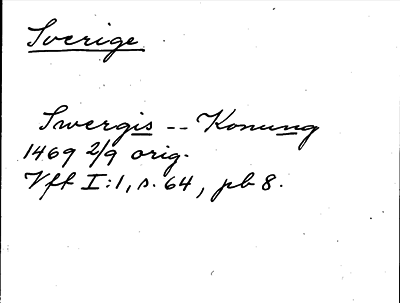 Sverige
Swergis -- Konung
1469 2/9 orig.
Vff I:1, s. 64, pb 8.